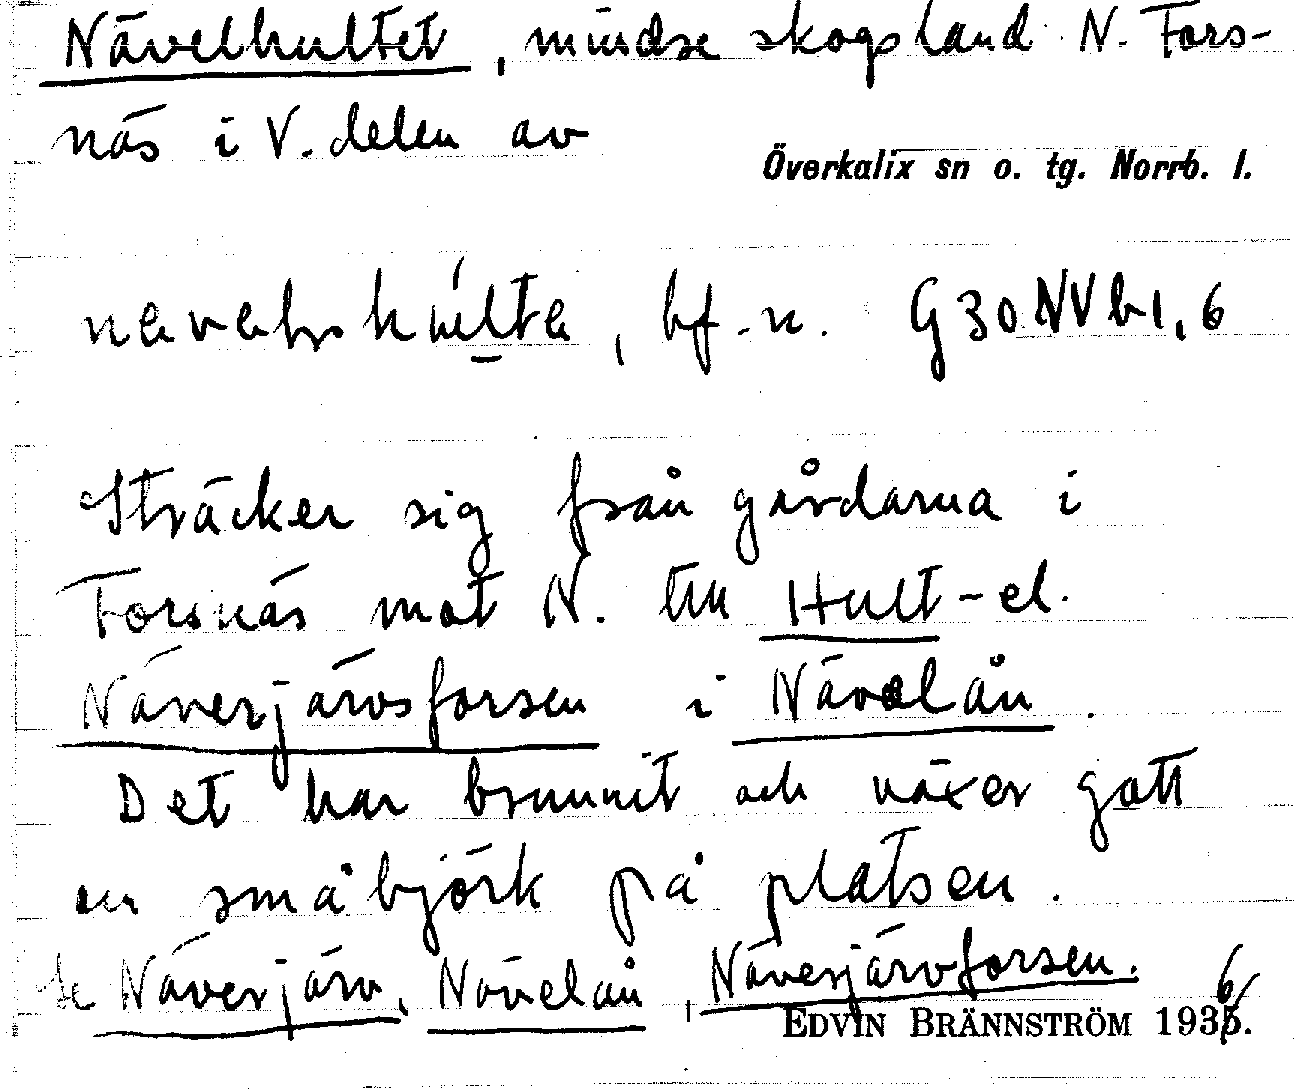 Nävelhultet, mindre skogsland N. Fors-
näs i V. delen av
Överkalix sn o. tg. Norrb. l.
bf. n. G30NVb1,6
Sträcker sig från gårdarna i
Forsnäs mot N. till Hult- el.
Näverjärvsforsen i Nävelån.
Det har brunnit och växer gott
om småbjörk på platsen.
Se Näverjärv, Nävelån, Näverjärvforsen.
EDVIN BRÄNNSTRÖM 1936.